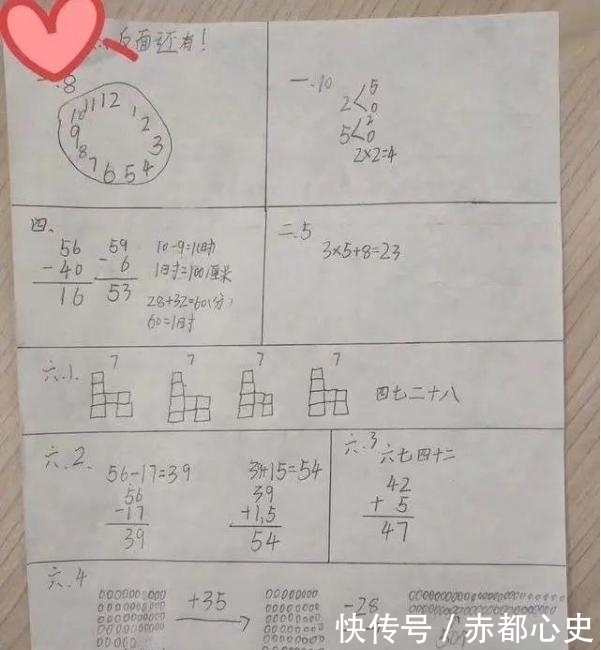 反面还有!
一.8
11 12 1
10 2
9 3
8 4
7 6 5
一.10
2 < 5
0
5 < 2
0
2×2=4
四.
56
- 40
16
59
- 6
53
10-9=1(时)
1时=100厘米
28+32=60(分)
60=1时
二.5
3×5+8=23
六.1.
7 7 7 7
四七二十八
六.2.
56-17=39
56
-17
39
39+15=54
39
+1,5
54
六.3
六七四十二
42
+ 5
47
六.4
+35
-28
快传号 / 赤都心史